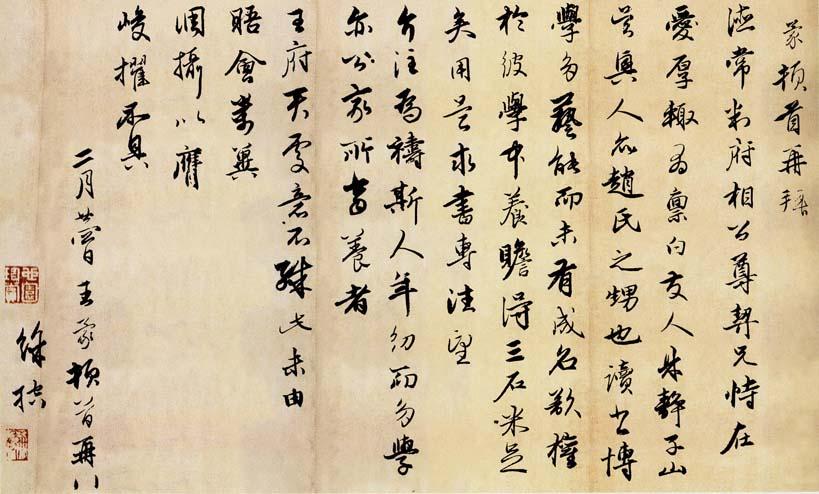 蒙頓首再拜
德常判府相公尊契兄恃在
愛厚輒有禀白友人朱靜子山
吳興人亦趙氏之甥也讀書博
學多藝能而未有成名欲權
於彼學中養贍得三石米足
矣用是求書專注望
介注為禱斯人年幼而多學
亦公家所當養者
王府天雯意不殊此未由
晤會萬冀
調攝以膺
峻擢不具
二月廿四日王蒙頓首再
徐